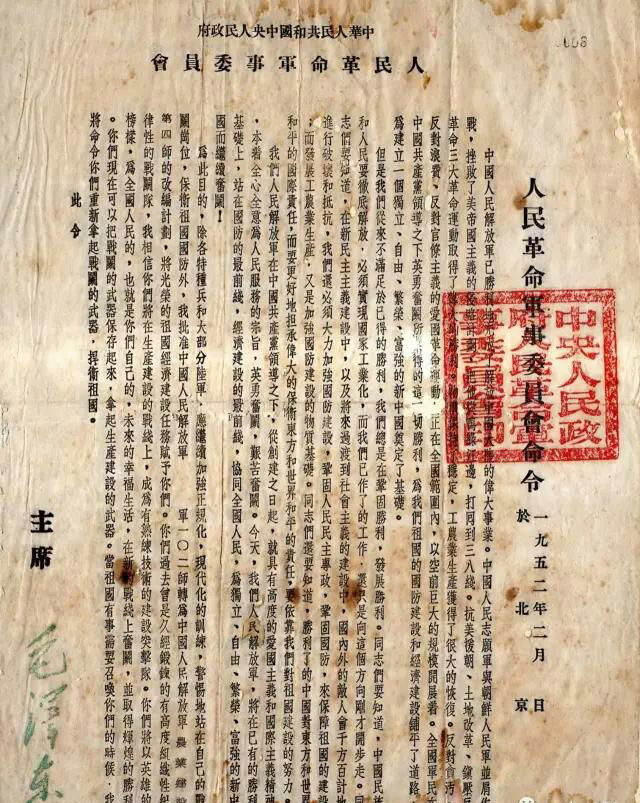 中華人民共和國中央人民政府
人民革命軍事委員會
0008
人民革命軍事委員會命令
一九五二年二月 日
於北京
中國人民解放軍已勝利地 的偉大事業。中國人民志願軍與朝鮮人民軍並肩作
戰，挫敗了美帝國主義的 邊，打回到三八綫。抗美援朝、土地改革、鎮壓反
革命三大革命運動取得了 穩定，工農業生產獲得了很大的恢復。反對貪汚
反對浪費、反對官僚主義的愛國革命運動，正在全國範圍內，以空前巨大的規模開展着。全國軍民在
中國共產黨領導之下英勇奮鬭所 得的這一切勝利，為我們祖國的國防建設和經濟建設鋪平了道路
為建立一個獨立、自由、繁榮、富強的新中國奠定了基礎。
但是我們從來不滿足於已得的勝利，我們總是在鞏固勝利，發展勝利。同志們要知道，中國民族
和人民要徹底解放，必須實現國家工業化，而我們已作了的工作，還只是向這個方向剛才開步走。同
志們要知道，在新民主主義建設中，以及將來過渡到社會主義的建設中，國內外的敵人會千方百計地
進行破壞和抵抗，我們還必須大力加強國防建設，鞏固人民民主專政，鞏固國防，來保障祖國的建設
；而發展工農業生產，又是加強國防建設的物質基礎。同志們還要知道，勝利了的中國對東方和世界
和平的國際責任，而要更好地担承偉大的保衛東方和世界和平的責任，要依靠我們對祖國建設的努力。
我們人民解放軍在中國共產黨領導之下，從創建之日起，就具有高度的愛國主義和國際主義精神
，本着全心全意為人民服務的宗旨，英勇奮鬭，艱苦奮鬭。今天，我們人民解放軍，將在已有的勝利
基礎上，站在國防的最前綫，經濟建設的最前綫，協同全國人民，為獨立、自由、繁榮、富強的新中
國而繼續奮鬭！
為此目的，除各特種兵和大部分陸軍，應繼續加強正規化，現代化的訓練，警惕地站在自己的戰
鬭崗位，保衛祖國國防外，我批准中國人民解放軍 軍一〇二師轉為中國人民解放軍農業建設
第四師的改編計劃，將光榮的祖國經濟建設任務賦予你們。你們過去曾是久經鍛鍊的有高度組織性紀
律性的戰鬭隊，我相信你們將在生產建設的戰綫上，成為有熟練技術的建設突擊隊。你們將以英雄的
榜樣，為全國人民的，也就是你們自己的，未來的幸福生活，在新的戰綫上奮鬭，並取得輝煌的勝利
。你們現在可以把戰鬭的武器保存起來，拿起生產建設的武器。當祖國有事需要召喚你們的時候，我
將命令你們重新拿起戰鬭的武器，捍衛祖國。
此令
主席
毛澤東